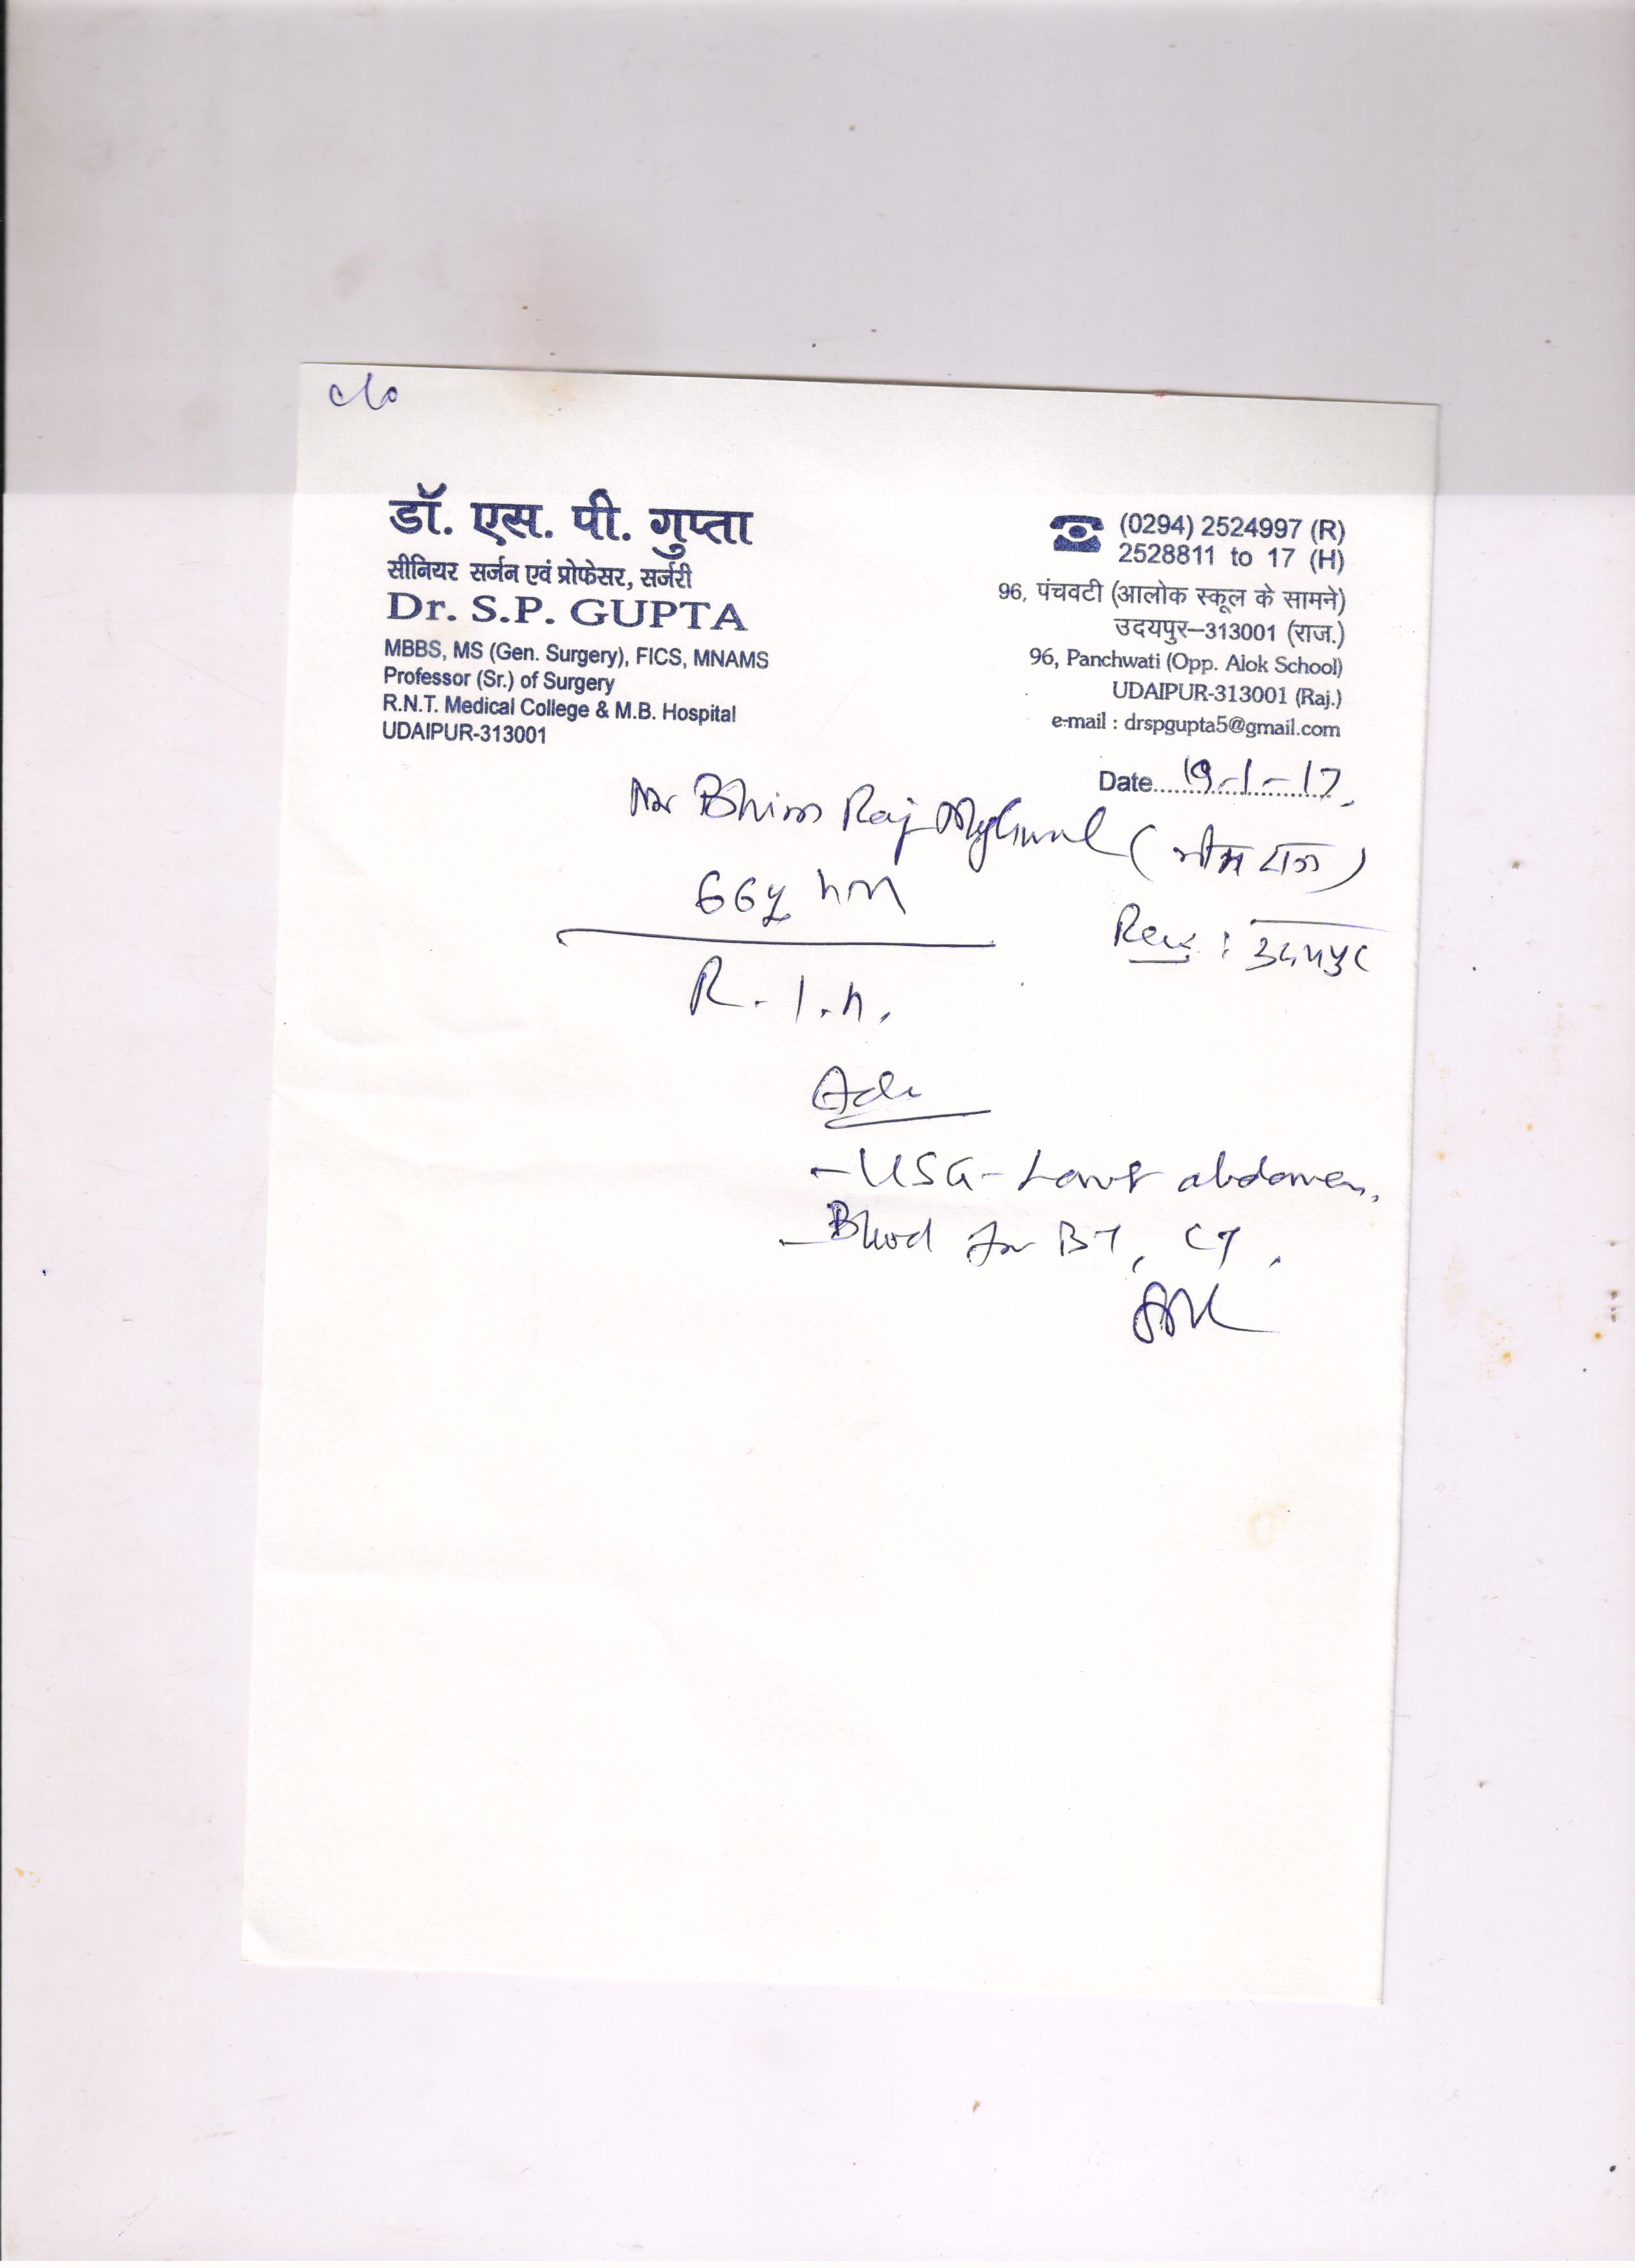 c/o
डॉ. एस. पी. गुप्ता
सीनियर सर्जन एवं प्रोफेसर, सर्जरी
Dr. S.P. GUPTA
MBBS, MS (Gen. Surgery), FICS, MNAMS
Professor (Sr.) of Surgery
R.N.T. Medical College & M.B. Hospital
UDAIPUR-313001
(0294) 2524997 (R)
2528811 to 17 (H)
96, पंचवटी (आलोक स्कूल के सामने)
उदयपुर–313001 (राज.)
96, Panchwati (Opp. Alok School)
UDAIPUR-313001 (Raj.)
e-mail : drspgupta5@gmail.com
Date 19-1-17
Bhim Raj (भीम राज)
66y
: उदयपुर
R.I.H.
Adv
- USG - Lower abdomen.
- Blood for BT, CT.